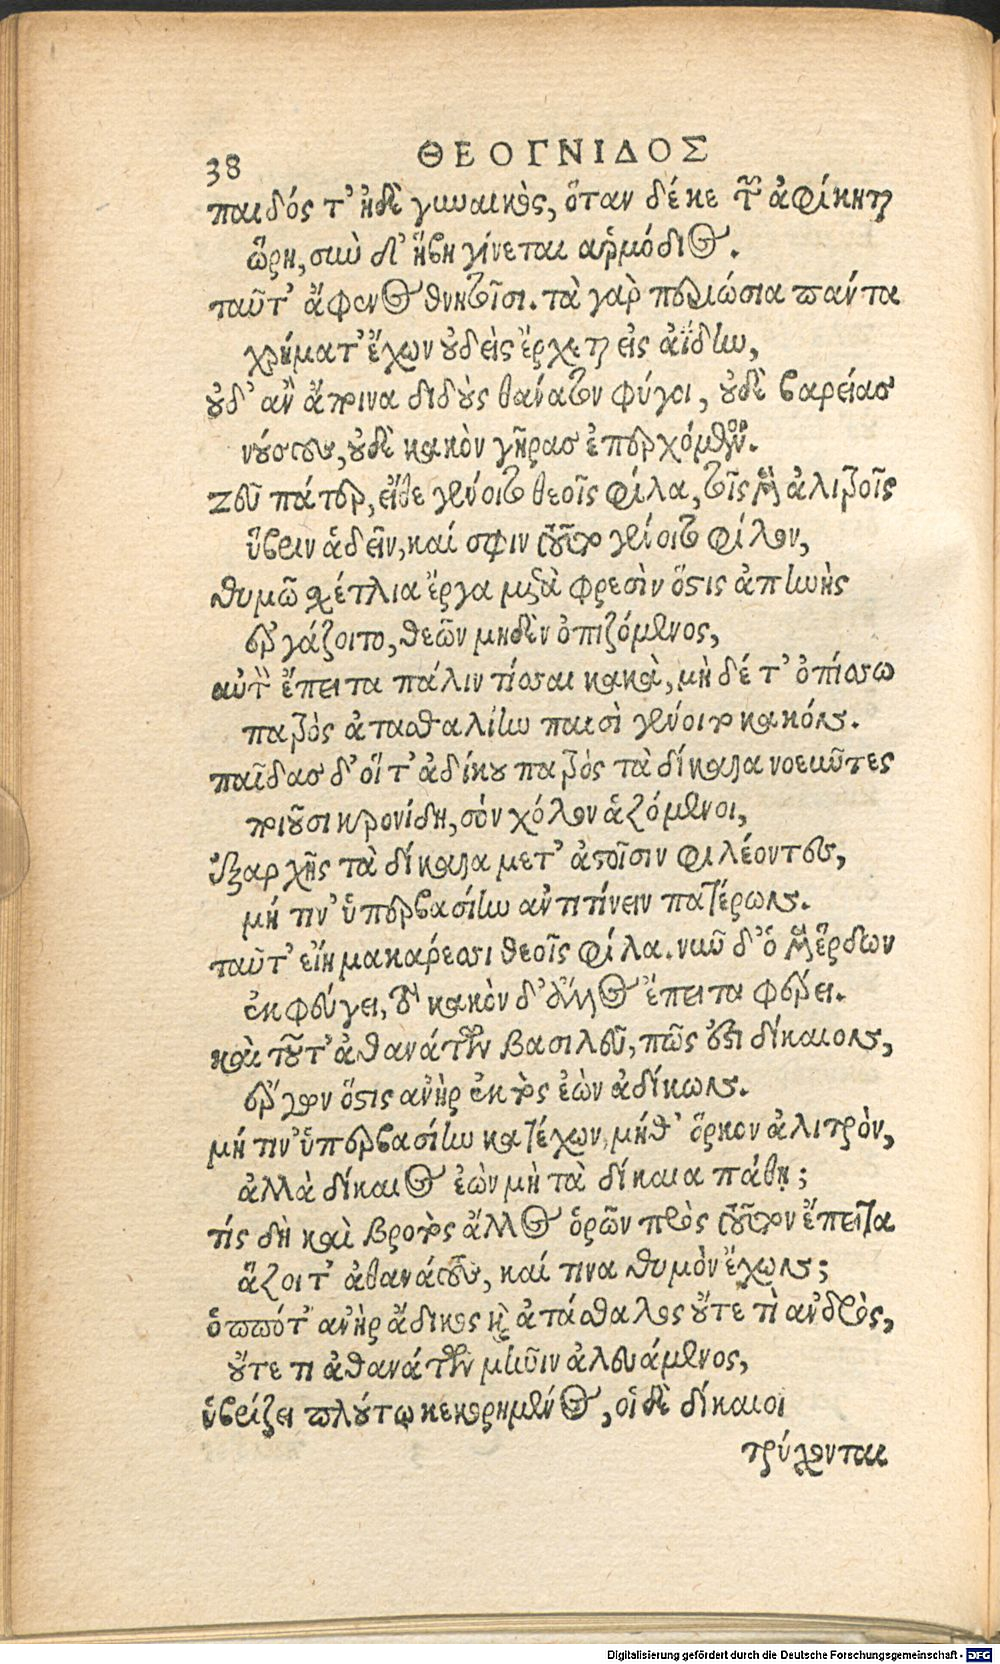 38 ΘΕΟΓΝΙΔΟΣ
παιδός τ' ἠδὲ γυναικὸς, ὅταν δέ κε τῶν ἀφίκηται
ὥρη, σὺν δ' ἥβη γίνεται ἁρμόδιος.
ταῦτ' ἄφενος θνητοῖσι. τὰ γὰρ περιώσια πάντα
χρήματ' ἔχων οὐδεὶς ἔρχεται εἰς ἀΐδην,
οὐδ' ἂν ἄποινα διδοὺς θάνατον φύγοι, οὐδὲ βαρείας
νούσους, οὐδὲ κακὸν γῆρας ἐπερχόμενον.
Ζεῦ πάτερ, εἴθε γένοιτο θεοῖς φίλα, τοῖς μὲν ἀλιτροῖς
ὕβριν ἁδεῖν, καί σφιν τοῦτο γένοιτο φίλον,
θυμῷ σχέτλια ἔργα μετὰ φρεσὶν ὅστις ἀπηνὴς
ἐργάζοιτο, θεῶν μηδὲν ὀπιζόμενος,
αὐτὸν ἔπειτα πάλιν τίσαι κακὰ, μὴ δέ τ' ὀπίσσω
πατρὸς ἀτασθαλίην παισὶ γένοιτο κακόν.
παῖδας δ' οἵ τ' ἀδίκου πατρὸς τὰ δίκαια νοεῦντες
ποιοῦσι κρονίδη, σὸν χόλον ἁζόμενοι,
ἐξαρχῆς τὰ δίκαια μετ' ἀστοῖσιν φιλέοντες,
μή τιν' ὑπερβασίην ἀντιτίνειν πατέρων.
ταῦτ' εἴη μακάρεσσι θεοῖς φίλα. νῦν δ' ὁ μὲν ἕρδων
ἐκφεύγει, τὸ κακὸν δ' ἄλλος ἔπειτα φέρει.
καὶ τοῦτ' ἀθανάτων βασιλεῦ, πῶς ἐστὶ δίκαιον,
ἔργον ὅστις ἀνὴρ ἐκτὸς ἐὼν ἀδίκων.
μή τιν' ὑπερβασίην κατέχων, μήθ' ὅρκον ἀλιτρὸν,
ἀλλὰ δίκαιος ἐὼν μὴ τὰ δίκαια πάθῃ;
τίς δὴ καὶ βροτὸς ἄλλος ὁρῶν πρὸς τοῦτον ἔπειτα
ἅζοιτ' ἀθανάτους, καί τινα θυμὸν ἔχων;
ὁππότ' ἀνὴρ ἄδικος καὶ ἀτάσθαλος οὔτε τὶ ἀνδρὸς,
οὔτε τι ἀθανάτων μῆνιν ἀλευάμενος,
ὑβρίζει πλούτῳ κεκορημένος, οἱ δὲ δίκαιοι
τρύχονται
Digitalisierung gefördert durch die Deutsche Forschungsgemeinschaft - DFG